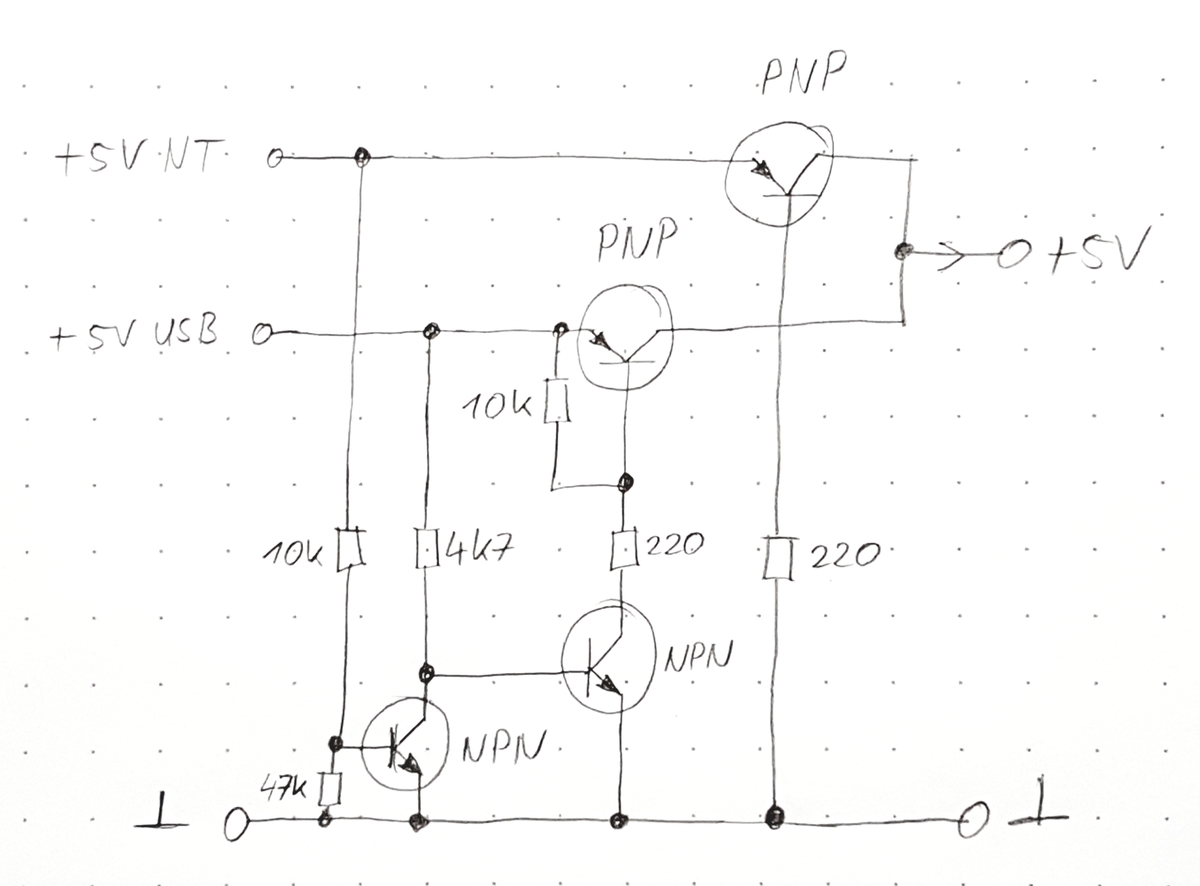 PNP
+5V NT
PNP
+5V
+5V USB
10k
10k
4k7
220
220
NPN
NPN
47k